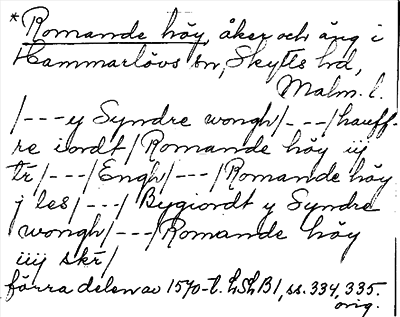 *Romande höy, åker och äng i
Hammarlövs sn, Skytts hd,
Malm. l.
/---y Syndre wongh/---/hauff-
re iordt/Romande höy iij
tr/---/Engh/---/Romande höy
j les/---/Bygiordt y Syndre
wongh/---/Romande höy
iiij skr/
förra delen av 1570-t. LSLB1, ss. 334, 335.
orig.